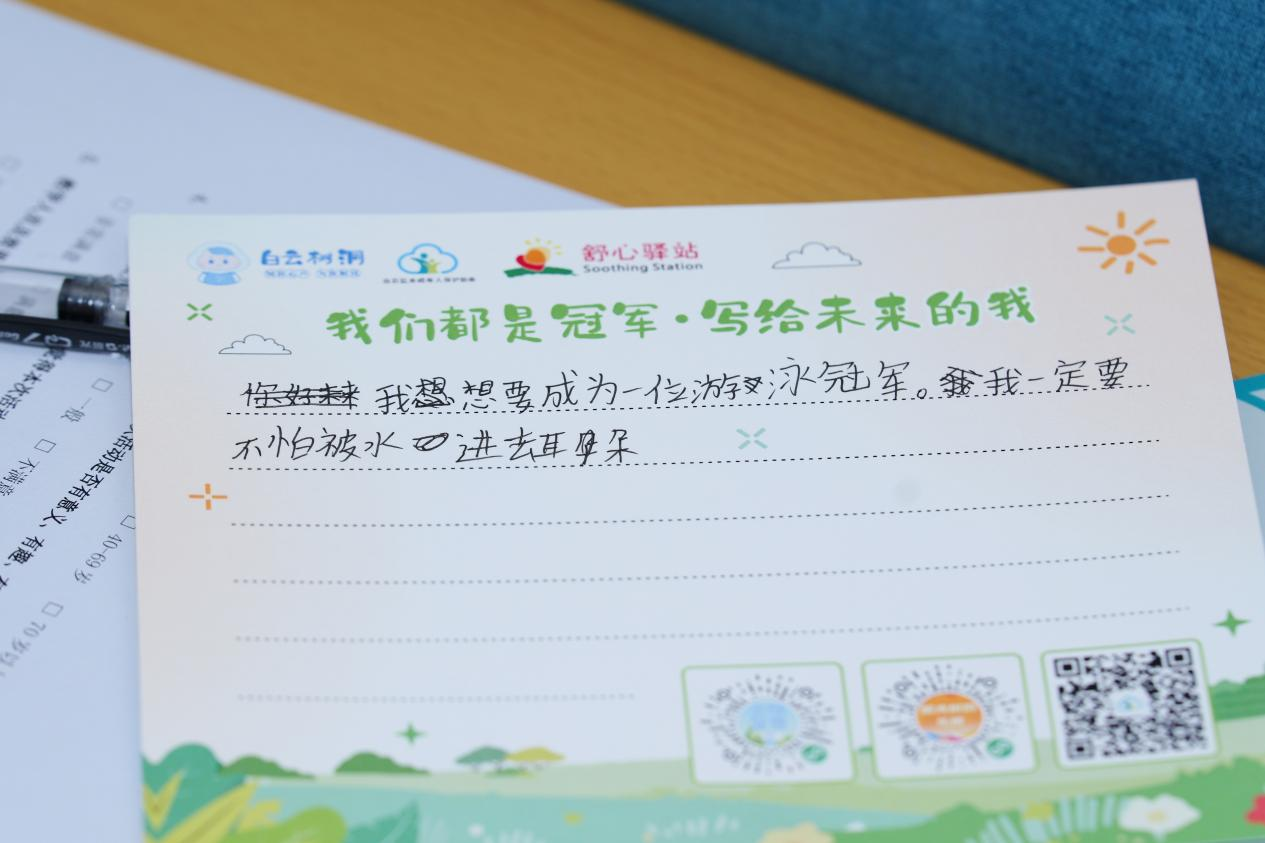 白云树洞
舒心驿站
Soothing Station
我们都是冠军·写给未来的我
你好未来 我想想要成为一位游泳冠军。我我一定要
不怕被水进去耳朵
一般
不满意
活动是否有意义、有趣、
40-69岁
70岁以